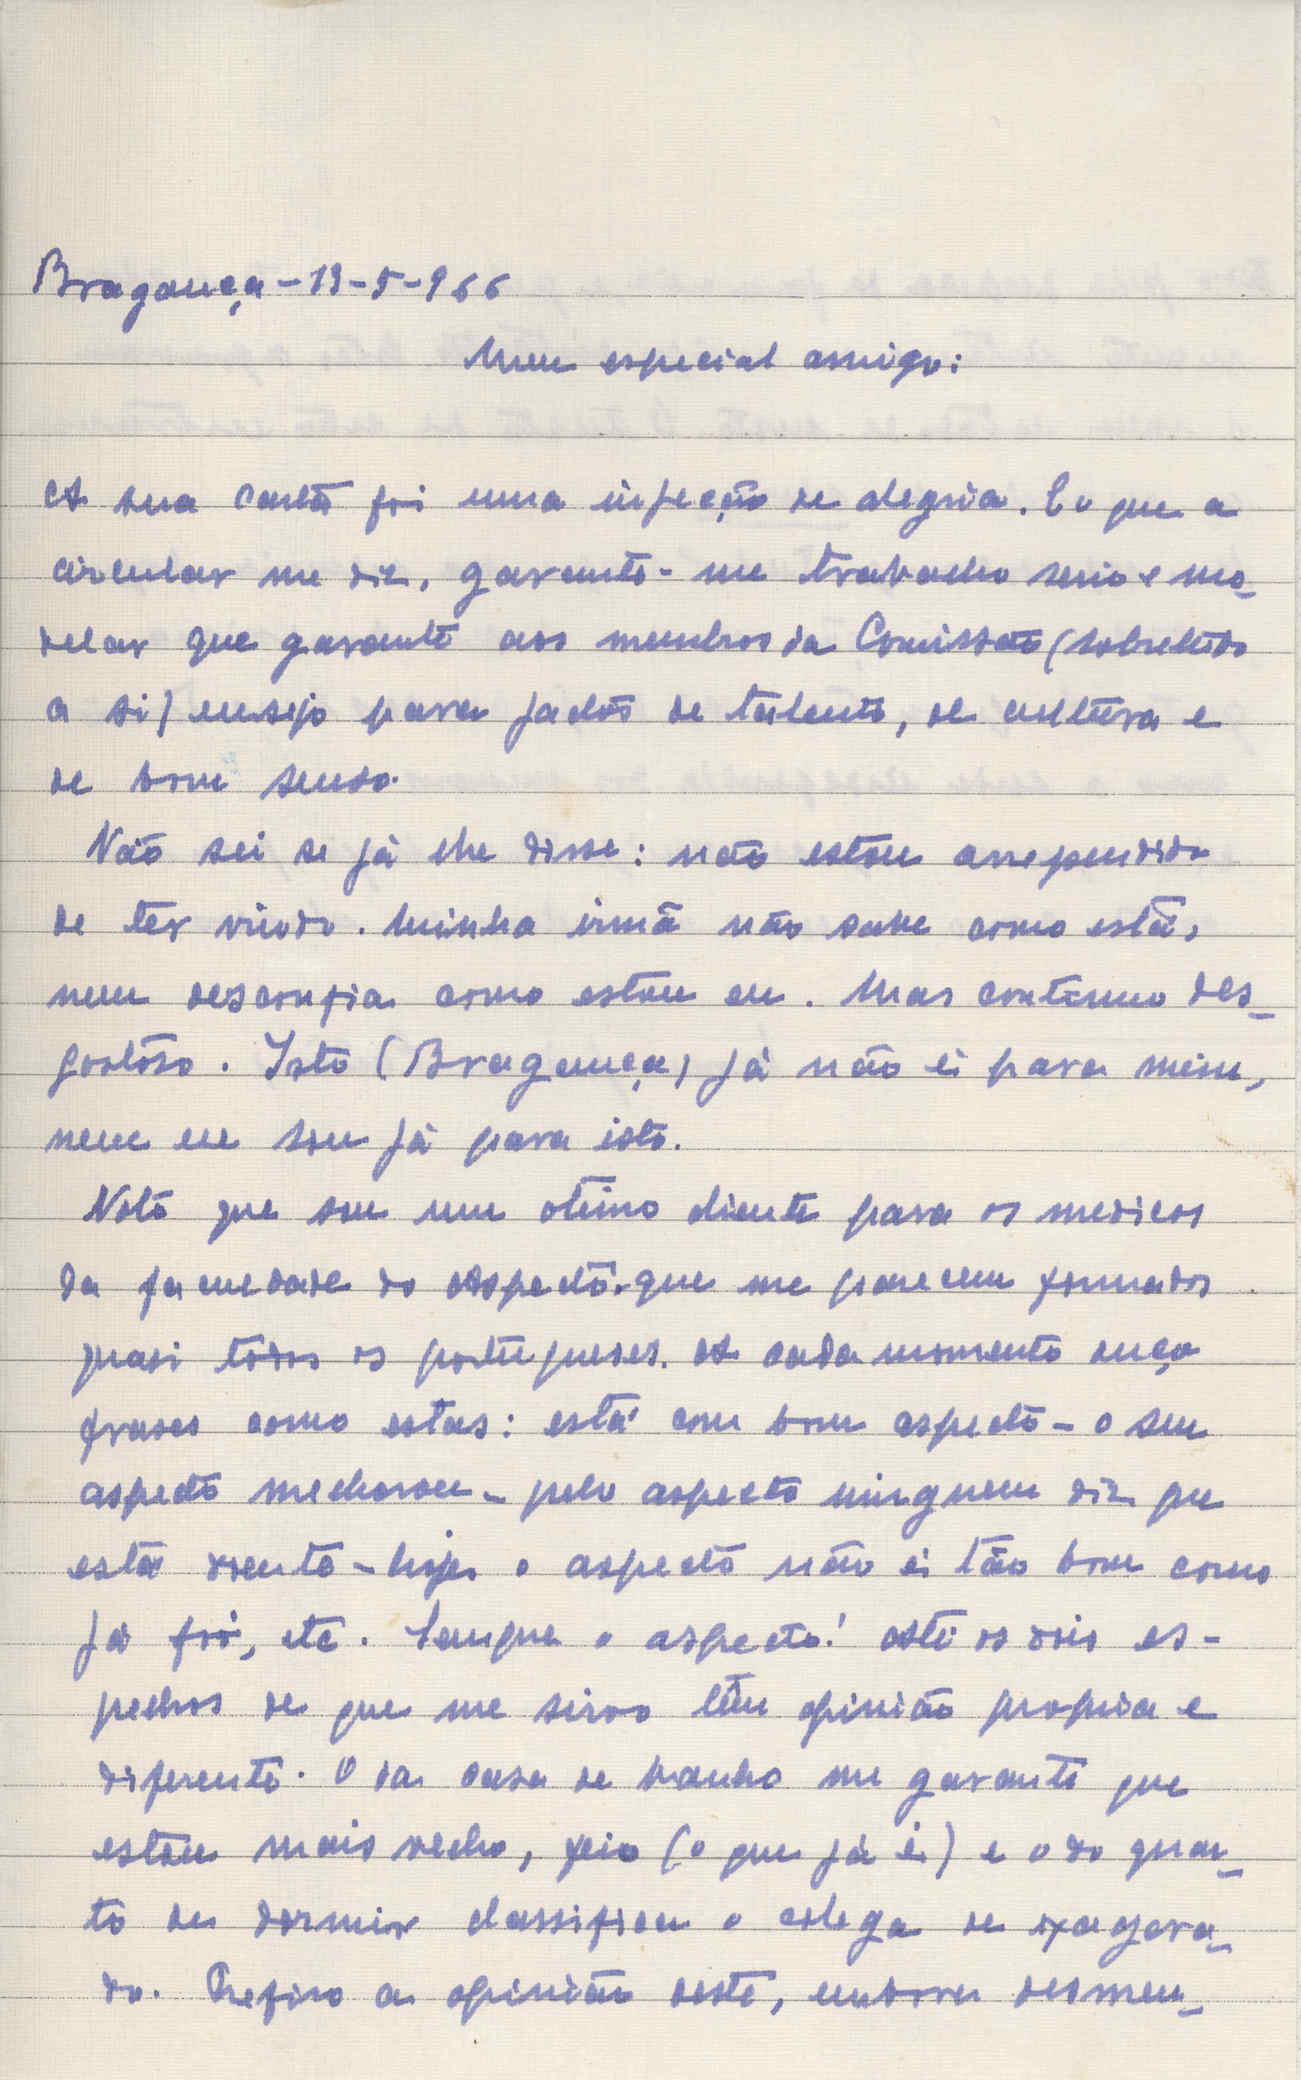 Bragança - 19-5-966
Meu especial amigo:
A sua carta foi uma injeção de alegria. E o que a
circular me diz, garante-me trabalho serio e mo-
delar que garante aos membros da Comissão (sobretudo
a si) ensejo para jactos de talento, de cultura e
de bom senso.
Não sei se já lhe disse: não estou arrependido
de ter vindo. Minha irmã não sabe como está,
nem desconfia como estou eu. Mas continuo des-
gostoso. Isto (Bragança) já não é para mim,
nem eu sou já para isto.
Noto que sou um otimo cliente para os medicos
da faculdade do Aspecto, que me parecem formados
quasi todos os portugueses. A cada momento ouço
frases como estas: está com bom aspecto - o seu
aspecto melhorou - pelo aspecto ninguem diz que
está doente - hoje o aspecto não é tão bom como
já foi, etc. Sempre o aspecto! Até os dois es-
pelhos de que me sirvo têm opinião propria e
diferente. O da casa de banho me garante que
estou mais velho, feio (o que já é) e o do quar-
to de dormir classifica o colega de exagera-
do. Prefiro a opinião deste, embora desmen-